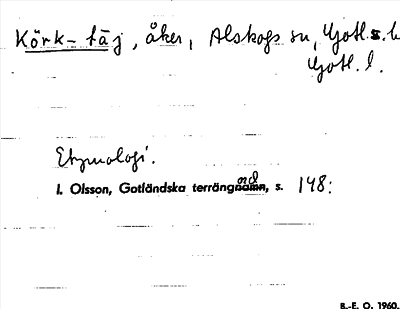 Körk-täj, åker, Alskogs sn, Gotl. s. h
Gotl. l.
Etymologi.
I. Olsson, Gotländska terrängnamn, s. 148:
ord
B.-E. O. 1960.